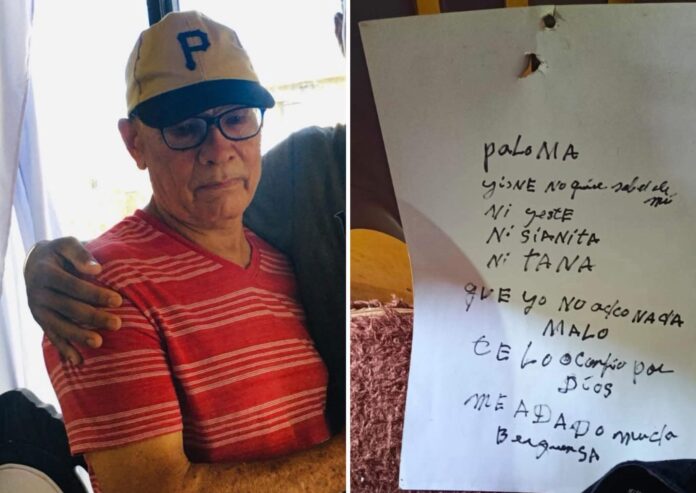 P
paLoMA
yisNE No quise sabel de
mi
Ni yeste
Ni SiANitA
Ni tANA
QUE yo No NAdA
MALO
te Lo por
Dios
ME ADADO mucha
BerguenSA